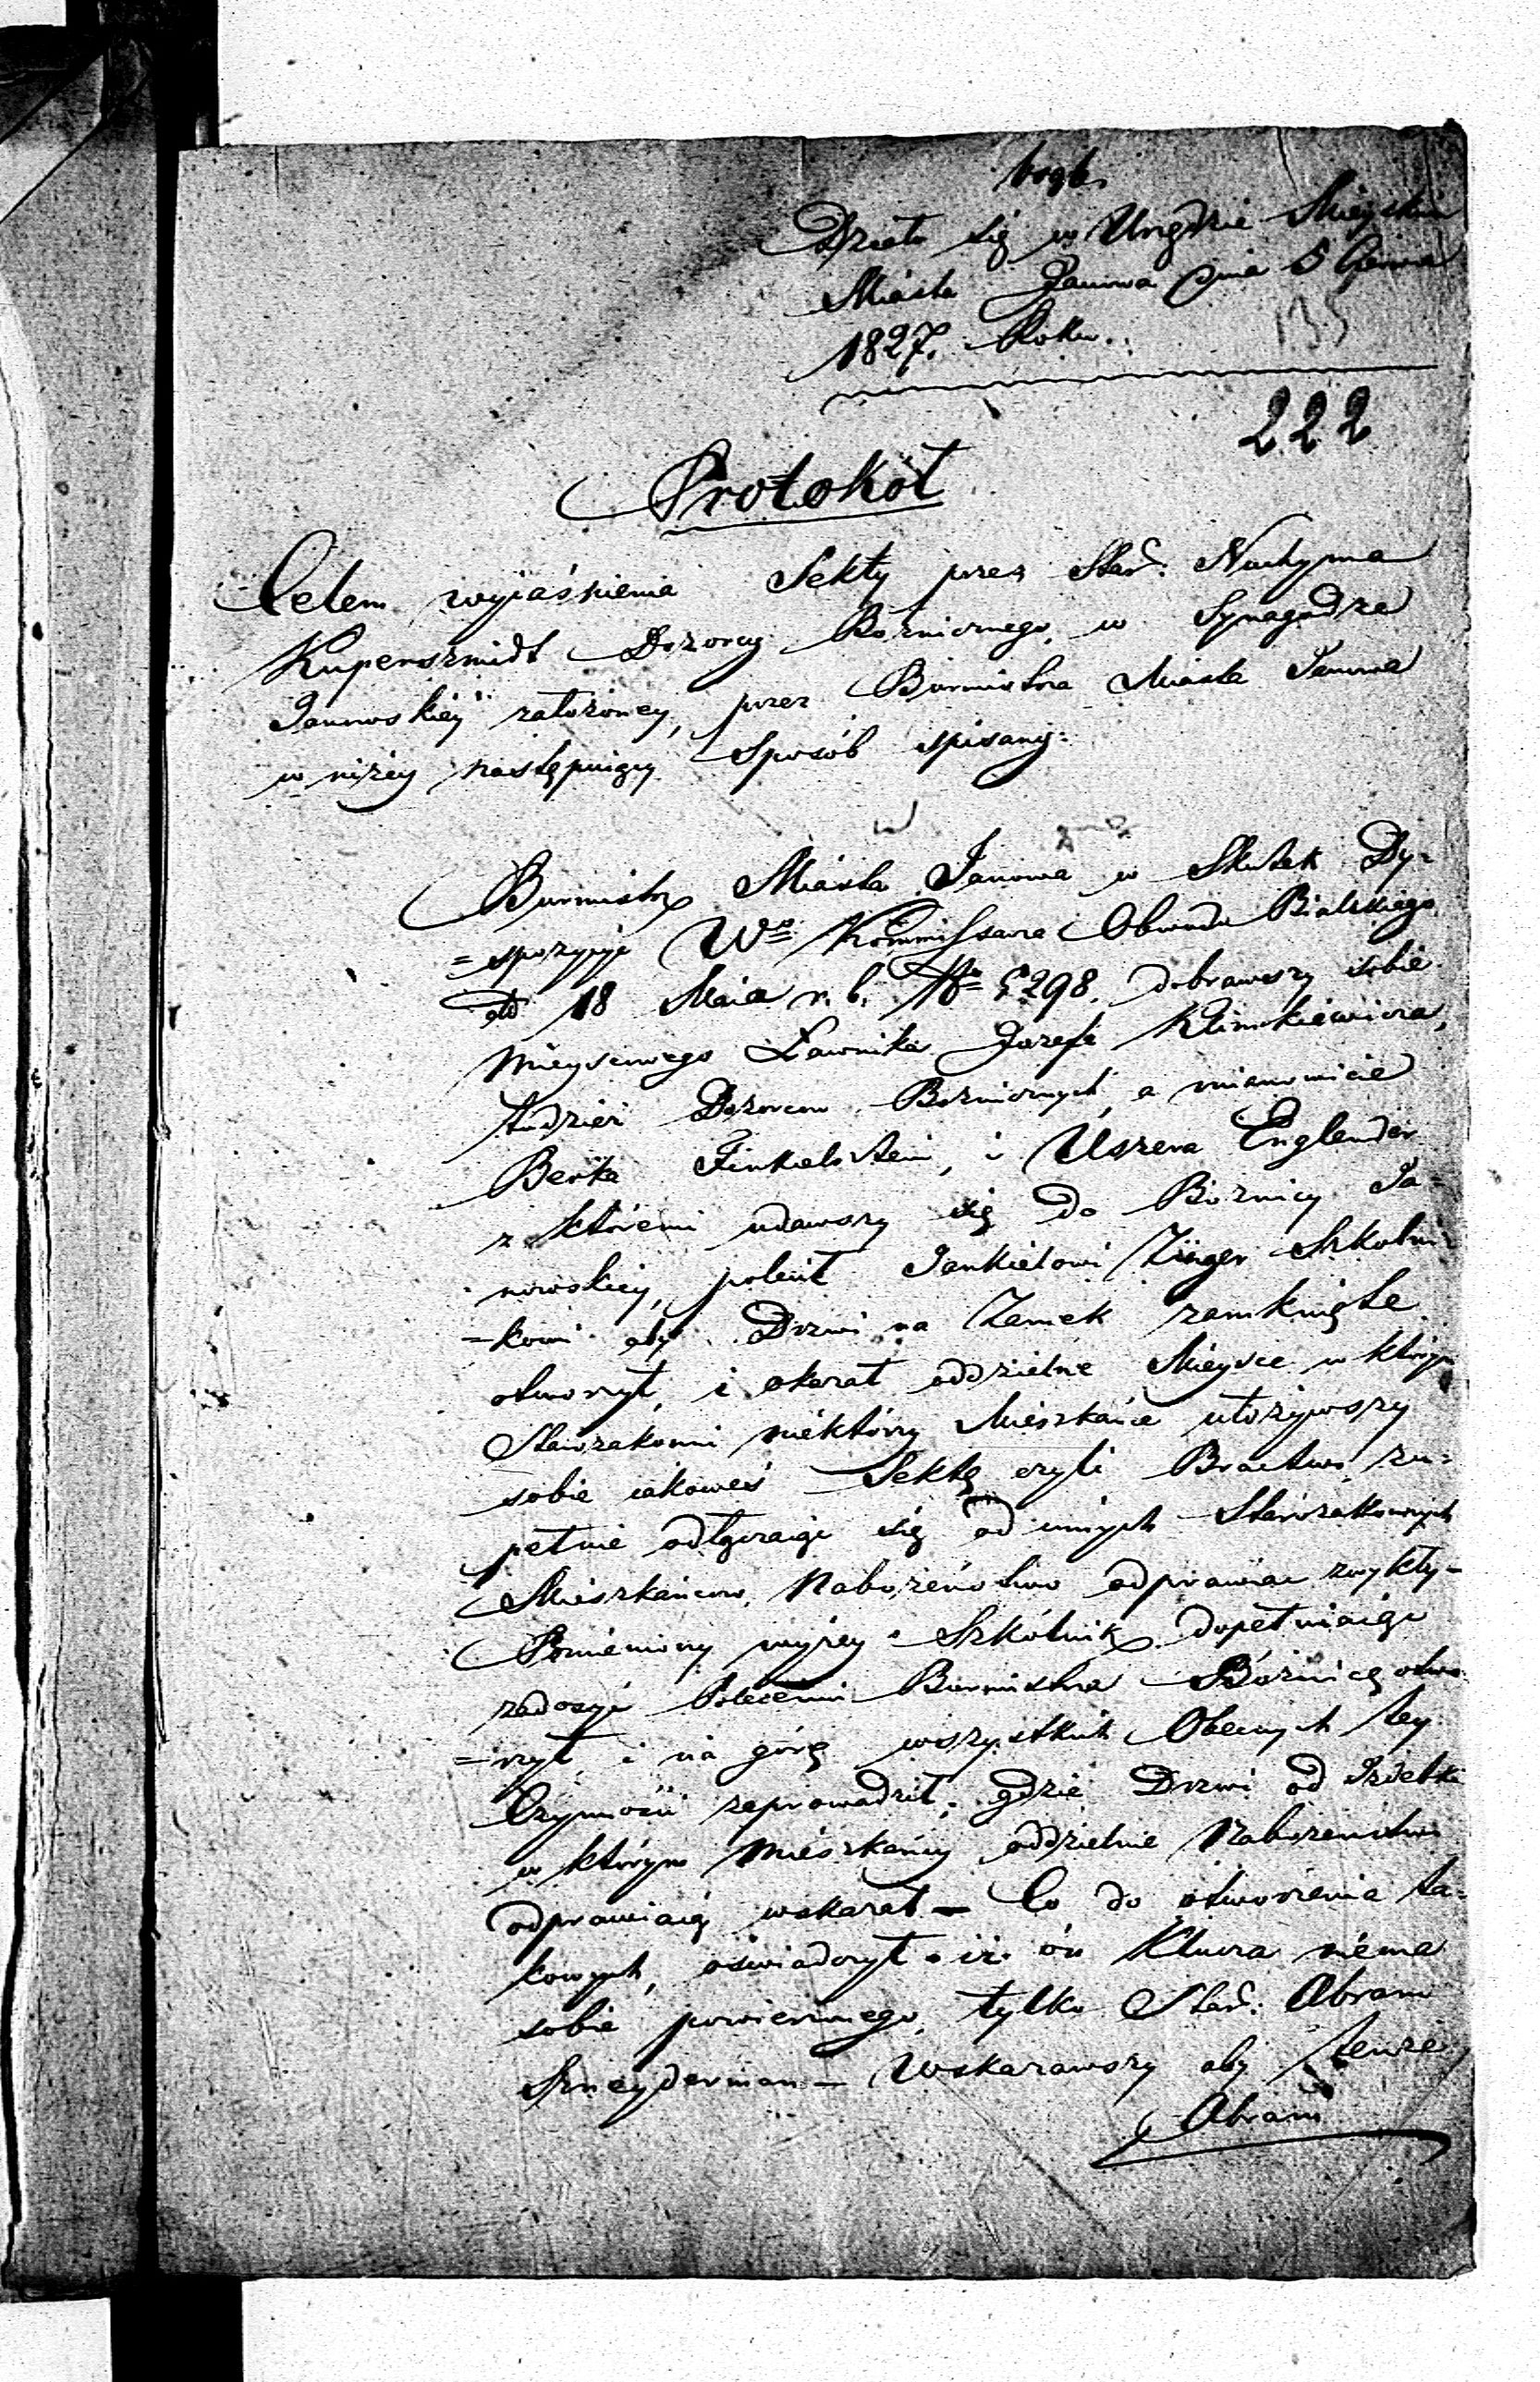 Działo się w Urzędzie Mieyskim
Miasta Janowa dnia 5 Czerwca
1827. Roku.
135
222
Protokół
Celem wyiaśnienia Sekty przez Star: Nuchyma
Kuperszmidt Dozorcy Bożnicznego, w Synagodze
Janowskiéy założoney, przez Burmistrza Miasta Janowa
w niżey następuiący Sposób spisany:
Burmistrz Miasta Janowa w Skutek Dy=
=spozycyi Wo Kommissarza Obwodu Bialskiego
dd 18 Maia r. b. No 5298. dobrawszy sobie
Mieyscowego Ławnika Jozefa Klimkiewicza,
tudzież Dozorców Bożnicznych, a mianowicie
Berka Finkielsztein, i Uszera Englender
z któremi udawszy się do Bożnicy Ja=
nowskiey, polecił Jankielowi Zinger Szkolni=
=kowi aby Drzwi na Zamek zamknięte
otworzył, i okazał oddzielne Mieysce w którym
Starozakonni niektórzy Mieszkańce ułożywszy
sobie iakoweś Sektę czyli Bractwo, zu=
pełnie odłączaiąc się od innych Starozakonnych
Mieszkańców, Nabożeństwo odprawiać zwykły=
Pomieniony wyżey Szkólnik dopełniaiąc
zadosyć Poleceniu Burmistrza Bóżnicę otwo
=rzył, i na górę wszystkich Obecnych tey
Czynności zaprowadził, gdzie Drzwi od Izdebki
w którym Mieszkańcy oddzielnie Nabożeństwo
odprawiaią wskazał – Co do otworzenia ta=
kowych, oświadczył iż on Klucza niema
sobie powierzonego, tylko Star: Abram
Szneyderman – Wskazawszy aby tenże
Abram